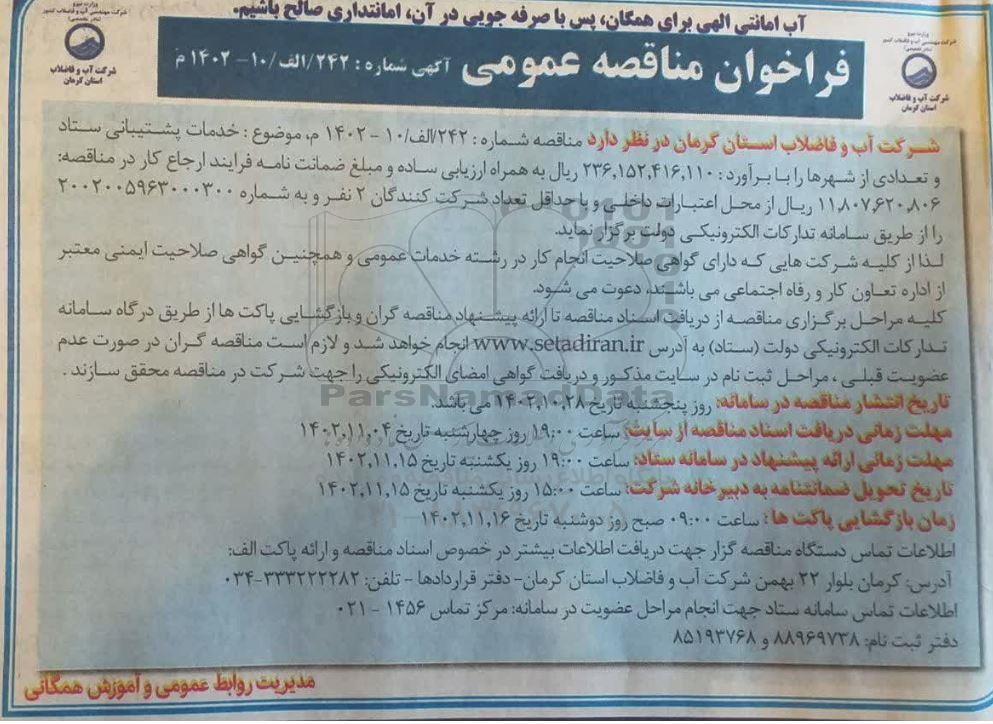 آب امانتی الهی برای همگان، پس با صرفه جویی در آن، امانتداری صالح باشیم.
وزارت نیرو
شرکت مهندسی آب و فاضلاب کشور
(مادر تخصصی)
شرکت آب و فاضلاب
استان کرمان
وزارت نیرو
شرکت مهندسی آب و فاضلاب کشور
(مادر تخصصی)
شرکت آب و فاضلاب
استان کرمان
فراخوان مناقصه عمومی آگهی شماره : ۲۴۲/الف/۱۰- ۱۴۰۲ م
شرکت آب و فاضلاب استان کرمان در نظر دارد مناقصه شماره : ۲۴۲/الف/۱۰ - ۱۴۰۲ م، موضوع : خدمات پشتیبانی ستاد
و تعدادی از شهرها را با برآورد : ۲۳۶,۱۵۲,۴۱۶,۱۱۰ ریال به همراه ارزیابی ساده و مبلغ ضمانت نامه فرایند ارجاع کار در مناقصه:
۱۱,۸۰۷,۶۲۰,۸۰۶ ریال از محل اعتبارات داخلی و با حداقل تعداد شرکت کنندگان ۲ نفر و به شماره ۲۰۰۲۰۰۵۹۶۳۰۰۰۳۰۰
را از طریق سامانه تدارکات الکترونیکی دولت برگزار نماید.
لذا از کلیه شرکت هایی که دارای گواهی صلاحیت انجام کار در رشته خدمات عمومی و همچنین گواهی صلاحیت ایمنی معتبر
از اداره تعاون کار و رفاه اجتماعی می باشند، دعوت می شود.
کلیه مراحل برگزاری مناقصه از دریافت اسناد مناقصه تا ارائه پیشنهاد مناقصه گران و بازگشایی پاکت ها از طریق درگاه سامانه
تدارکات الکترونیکی دولت (ستاد) به آدرس www.setadiran.ir انجام خواهد شد و لازم است مناقصه گران در صورت عدم
عضویت قبلی ، مراحل ثبت نام در سایت مذکور و دریافت گواهی امضای الکترونیکی را جهت شرکت در مناقصه محقق سازند .
تاریخ انتشار مناقصه در سامانه: روز پنجشنبه تاریخ ۱۴۰۲,۱۰,۲۸ می باشد.
مهلت زمانی دریافت اسناد مناقصه از سایت: ساعت ۱۹:۰۰ روز چهارشنبه تاریخ ۱۴۰۲,۱۱,۰۴
مهلت زمانی ارائه پیشنهاد در سامانه ستاد: ساعت ۱۹:۰۰ روز یکشنبه تاریخ ۱۴۰۲,۱۱,۱۵
تاریخ تحویل ضمانتنامه به دبیرخانه شرکت: ساعت ۱۵:۰۰ روز یکشنبه تاریخ ۱۴۰۲,۱۱,۱۵
زمان بازگشایی پاکت ها : ساعت ۰۹:۰۰ صبح روز دوشنبه تاریخ ۱۴۰۲,۱۱,۱۶
اطلاعات تماس دستگاه مناقصه گزار جهت دریافت اطلاعات بیشتر در خصوص اسناد مناقصه و ارائه پاکت الف:
آدرس: کرمان بلوار ۲۲ بهمن شرکت آب و فاضلاب استان کرمان- دفتر قراردادها - تلفن: ۳۳۳۲۲۲۲۸۲-۰۳۴
اطلاعات تماس سامانه ستاد جهت انجام مراحل عضویت در سامانه: مرکز تماس ۱۴۵۶ - ۰۲۱
دفتر ثبت نام: ۸۸۹۶۹۷۳۸ و ۸۵۱۹۳۷۶۸
مدیریت روابط عمومی و آموزش همگانی
ParsNamadData